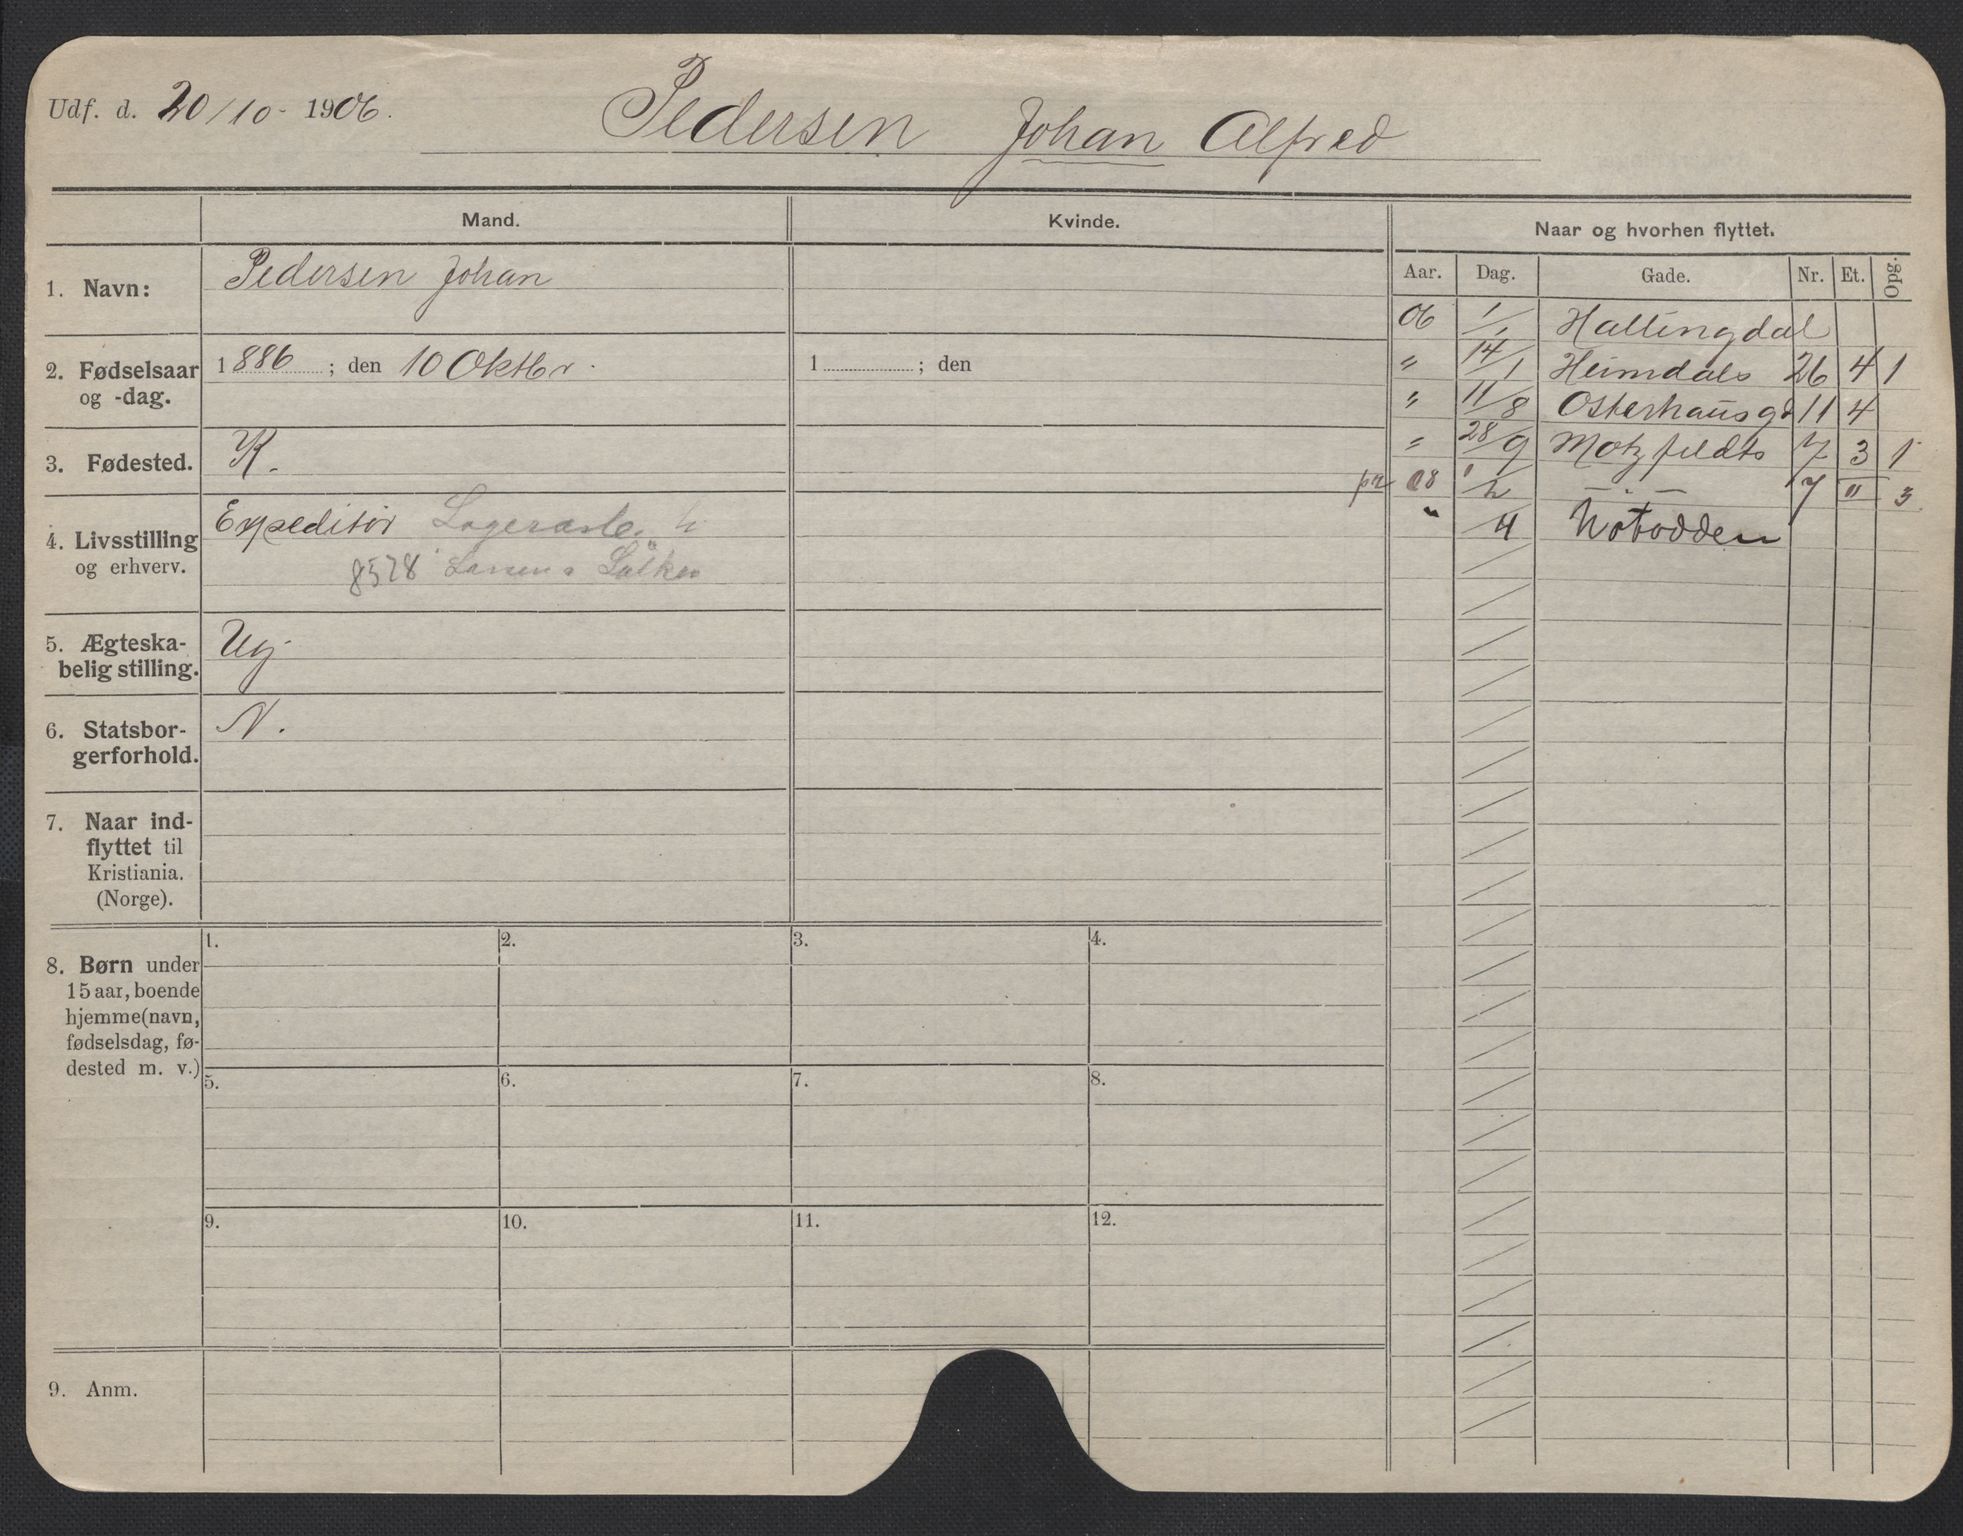 Udf. d. 20/10 - 1906.
Pedersen Johan Alfred
Mand. Kvinde. Naar og hvorhen flyttet.
Aar. Dag. Gade. Nr. Et. Opg.
1. Navn: Pedersen Johan
2. Fødselsaar og -dag. 1886 ; den 10 Oktbr. 1 ; den
3. Fødested. K.
4. Livsstilling og erhverv. Expeditør
8578 Larsens
5. Ægteska-
belig stilling. Ug
6. Statsbor-
gerforhold. N.
7. Naar ind-
flyttet til
Kristiania.
(Norge).
8. Børn under
15 aar, boende
hjemme (navn,
fødselsdag, fø-
dested m. v.)
1. 2. 3. 4.
5. 6. 7. 8.
9. 10. 11. 12.
9. Anm.
06 1/1 Hallingdal
" 14/1 Heimdals 26 4 1
" 11/8 Osterhausgd 11 4
" 28/9 Motzfeldts 7 3 1
08 1/2 — " — 7 " 3
" /4 Notodden